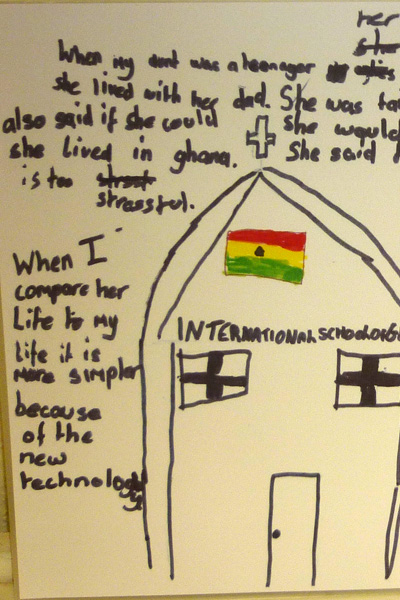 her
When my aunt was a teenager
she lived with her dad. She was
also said if she could she would
she lived in ghana. She said
is too
stressful.
When I
compare her
Life to my
life it is
more simpler
because
of the
new
technology
INTERNATIONAL SCHOOL OF G